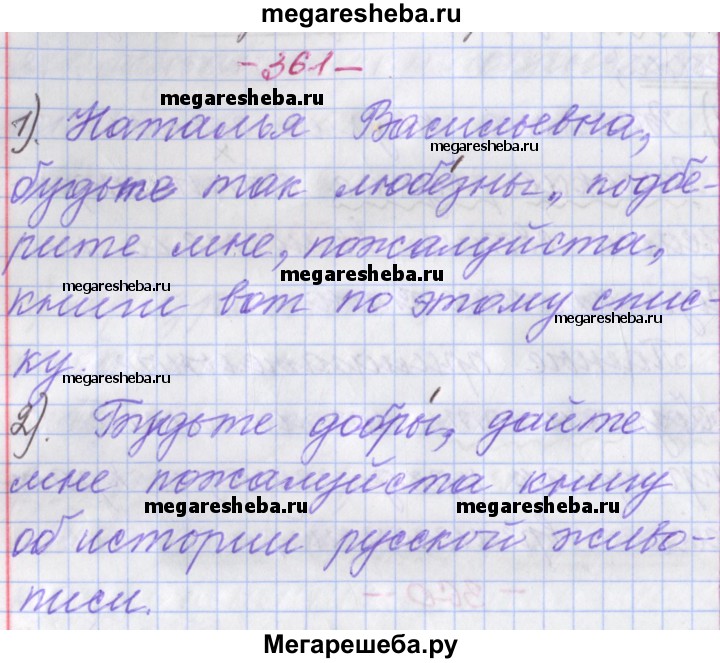 megaresheba.ru
-361-
megaresheba.ru
1). Наталья Васильевна,
megaresheba.ru
будьте так любе́зны, подбе-
рите мне, пожалуйста,
megaresheba.ru
megaresheba.ru
книги вот по этому спис-
megaresheba.ru
ку.
megaresheba.ru
2). Будьте добры́, дайте
мне пожалуйста книгу
megaresheba.ru megaresheba.ru
об истории русской живо-
писи.
Мегарешеба.ру